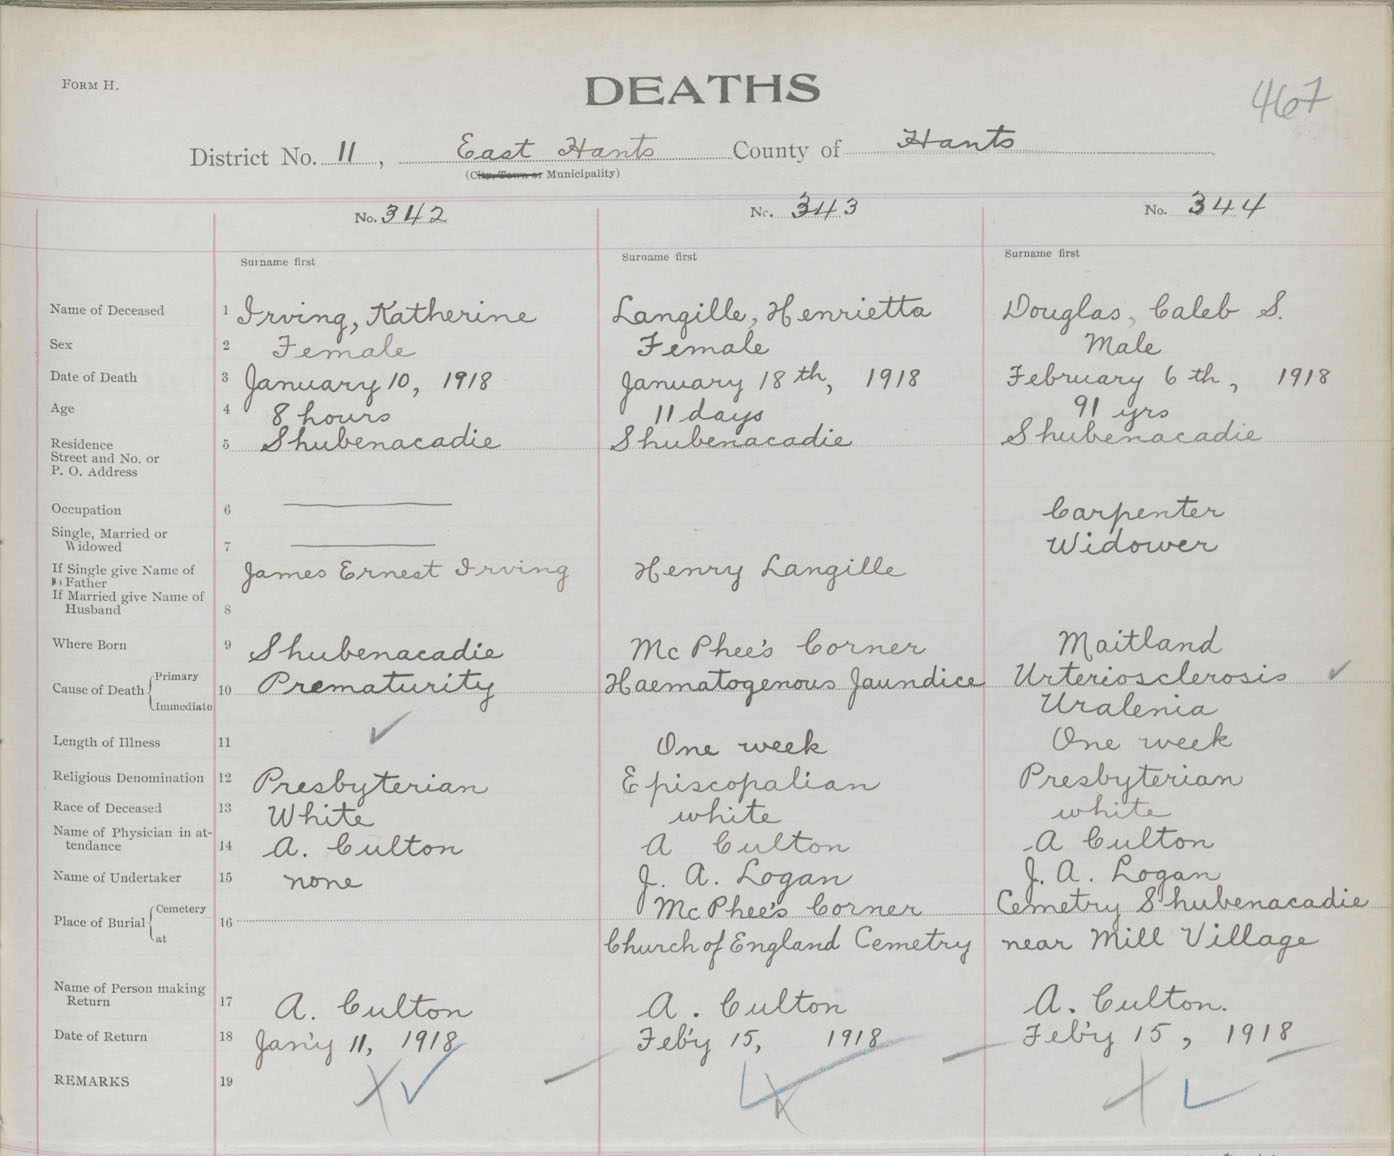 FORM H.
DEATHS
467
District No. 11, East Hants County of Hants
(City, Town or Municipality)
No. 342 No. 343 No. 344
Surname first Surname first Surname first
Name of Deceased 1 Irving, Katherine Langille, Henrietta Douglas, Caleb S.
Sex 2 Female Female Male
Date of Death 3 January 10, 1918 January 18th, 1918 February 6th, 1918
Age 4 8 hours 11 days 91 yrs
Residence 5 Shubenacadie Shubenacadie Shubenacadie
Street and No. or
P. O. Address
Occupation 6 Carpenter
Single, Married or
Widowed 7 Widower
If Single give Name of James Ernest Irving Henry Langille
Father
If Married give Name of
Husband 8
Where Born 9 Shubenacadie McPhee's Corner Maitland
Cause of Death Primary 10 Prematurity Haematogenous Jaundice Urteriosclerosis
Immediate Uralenia
Length of Illness 11 One week One week
Religious Denomination 12 Presbyterian Episcopalian Presbyterian
Race of Deceased 13 White white white
Name of Physician in at-
tendance 14 A. Culton A Culton A Culton
Name of Undertaker 15 none J. A. Logan J. A. Logan
Place of Burial Cemetery 16 McPhee's Corner Cemetry Shubenacadie
at Church of England Cemetry near Mill Village
Name of Person making
Return 17 A. Culton A. Culton A. Culton.
Date of Return 18 Jan'y 11, 1918 Feb'y 15, 1918 Feb'y 15, 1918
REMARKS 19